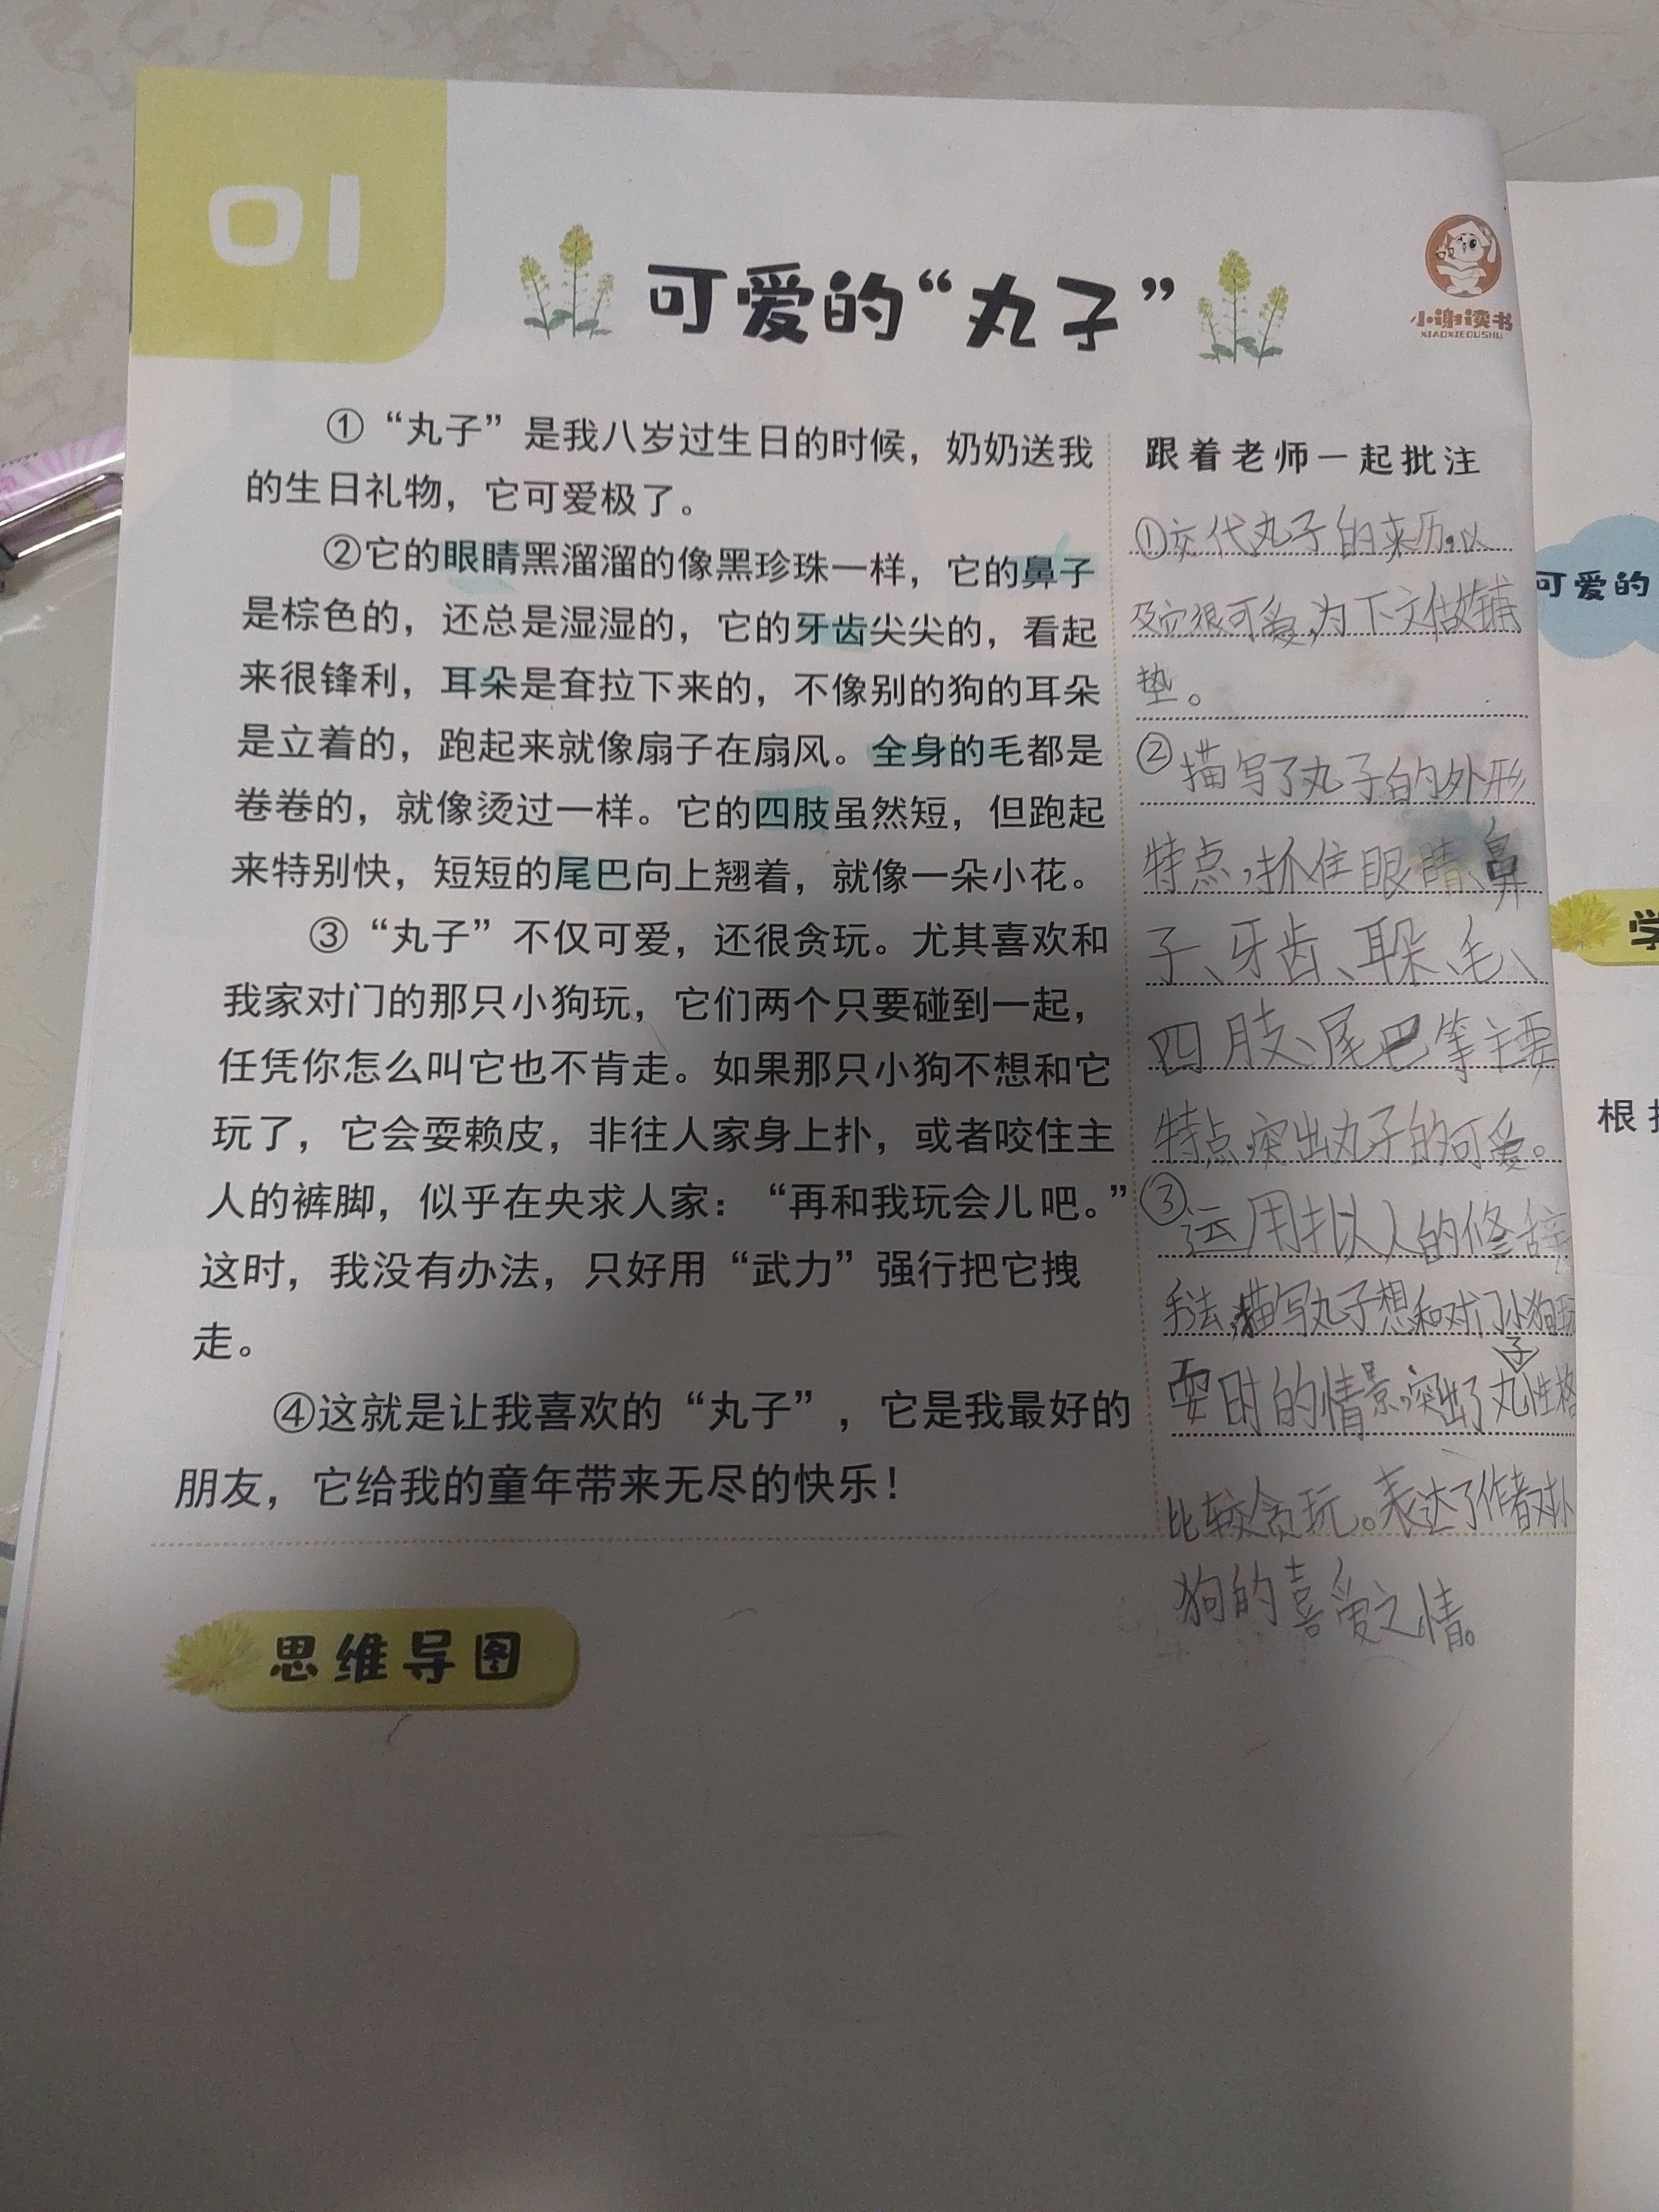 01
可爱的“丸子”
小谢读书
XIAOXIEDUSHU
①“丸子”是我八岁过生日的时候，奶奶送我
的生日礼物，它可爱极了。
②它的眼睛黑溜溜的像黑珍珠一样，它的鼻子
是棕色的，还总是湿湿的，它的牙齿尖尖的，看起
来很锋利，耳朵是耷拉下来的，不像别的狗的耳朵
是立着的，跑起来就像扇子在扇风。全身的毛都是
卷卷的，就像烫过一样。它的四肢虽然短，但跑起
来特别快，短短的尾巴向上翘着，就像一朵小花。
③“丸子”不仅可爱，还很贪玩。尤其喜欢和
我家对门的那只小狗玩，它们两个只要碰到一起，
任凭你怎么叫它也不肯走。如果那只小狗不想和它
玩了，它会耍赖皮，非往人家身上扑，或者咬住主
人的裤脚，似乎在央求人家：“再和我玩会儿吧。”
这时，我没有办法，只好用“武力”强行把它拽
走。
④这就是让我喜欢的“丸子”，它是我最好的
朋友，它给我的童年带来无尽的快乐！
跟着老师一起批注
①交代丸子的来历。以
及它很可爱，为下文做铺
垫。
②描写了丸子的外形
特点，抓住眼睛、鼻
子、牙齿、耳朵、毛、
四肢、尾巴等主要
特点，突出丸子的可爱。
③运用拟人的修辞
手法，描写丸子想和对门小狗玩
耍时的情景，突出了丸子性格
比较贪玩。表达了作者对小
狗的喜爱之情。
思维导图
可爱的
学
根